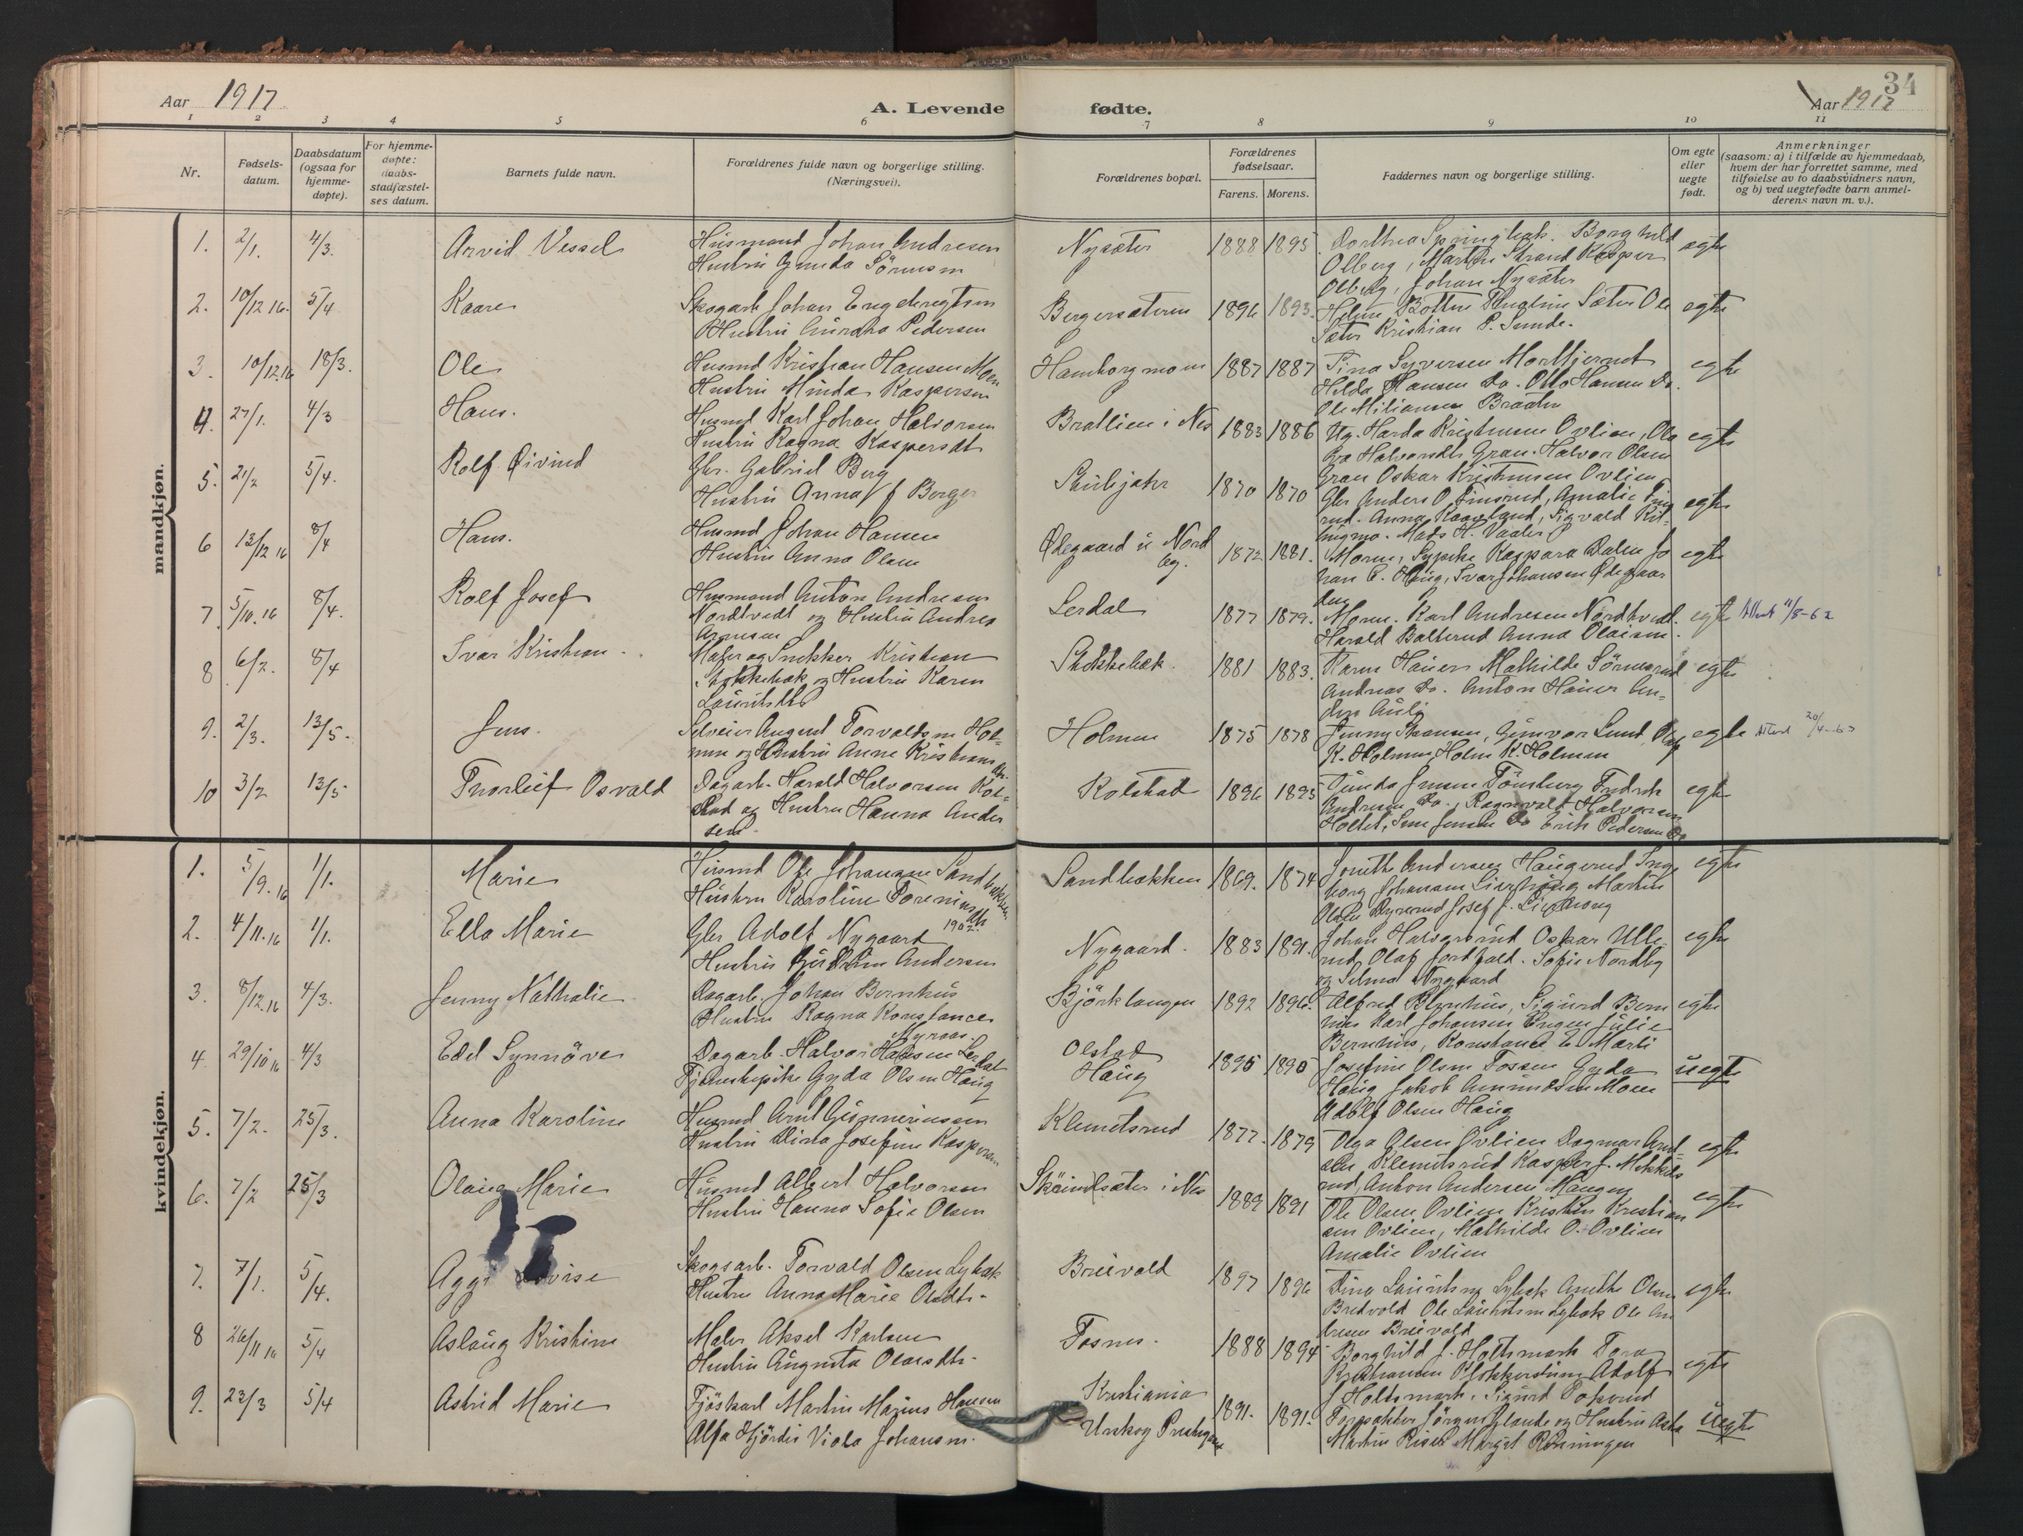 Aar 1917
A. Levende fødte.
34
Aar 1917
1 2 3 4 5 6 7 8 9 10 11
Nr.
Fødsels-
datum.
Daabsdatum
(ogsaa for
hjemme-
døpte).
For hjemme-
døpte:
daabs-
stadfæstel-
ses datum.
Barnets fulde navn.
Forældrenes fulde navn og borgerlige stilling.
(Næringsvei).
Forældrenes bopæl.
Forældrenes
fødselsaar.
Farens. Morens.
Faddernes navn og borgerlige stilling.
Om egte
eller
uegte
født.
Anmerkninger
(saasom: a) i tilfælde av hjemmedaab,
hvem der har forrettet samme, med
tilføielse av to daabsvidners navn,
og b) ved uegtefødte barn anmel-
derens navn m. v.).
mandkjøn.
1. 2/1. 4/3. Arvid Vessel
Husmand Johan Andresen
Hustru Gunda
Nysæter 1888 1895
Dorthea Springbæk. Borghild
Olberg, Martin Strand Kasper
Olberg, Johan Nysæter
egte
2. 10/12 16. 5/4 Kaare
Skogarb Johan Engebregtsen
Hustru Aurora Pedersen
Bergersæteren 1896 1893.
Sæter Ole
Sæter Kristian P. Sunde.
egte
3. 10/12.16 18/3. Ole
Husmd Kristian Hansen Moen
Hustru Minda Kaspersen
1887 1887
Tina Syversen
Hilda Hansen Do. Otto Hansen Do.
Ole Miliansen Braaten
egte
4. 27/1. 4/3 Hans.
Husmd Karl Johan Halvorsen
Hustru Ragna Kaspersdt
Bratlien i Nes 1883 1886
Ug. Harda Kristiansen Ovlien, Ola
Halvorsdt Gran. Halvor Olsen
Gran Oskar Kristiansen Ovlien
egte
5. 2/2 5/4. Rolf Øivind
Gbr. Gabriel Berg
Hustru Anna f Berger
1870 1870
Gbr Anders O. Finsrud, Amalie Fins
rud. Anna Kaareland, Sigvald
Mads H. Vaaler
egte
6 13/12 16 8/4 Hans.
Husmd Johan Hansen
Hustru Anna Olsen
Ødegaard i Nord
by. 1872 1881.
Moren, Sypike Kaspara Dalen Jo
han E. Haug, Ivar Johansen Ødegaar
den
egte
7. 5/10.16 8/4. Rolf Josef
Husmand Anton Andresen
Nordtvedt og Hustru Andrea
Arnesen
Lerdal 1877 1879.
Moren. Karl Andresen Nordtvedt.
Harald Balterud Anna Olaisen.
egte Attest 11/8-62
8 6/2. 8/4 Ivar Kristian.
Maler og Snekker Kristian
Stokkebæk og Hustru Karen
Lauritsdt
Stokkebæk. 1881 1883.
Karen Hauer Mathilde
Andreas Do. Anton Hauer An-
ders Aulie
egte
9. 2/3. 13/5. Jens.
Selveier August Torvaldsen Hol-
men og Hustru Anne Kristians
dtr.
Holmen 1875 1878
Jenny Svensen, Gunvor Lund, Olaf
K. Holmen, Holm K Holmen
egte Attest 20/4-63
10 3/2 13/5 Thorleif Osvald
Dagarb. Harald Halvorsen Kol-
stad og Hustru Hanna Ander
sen.
Kolstad 1896 1895
Gunda Jensen Tønsberg Fredrik
Andresen Do., Ragnvald Halvorsen
Holtet, Jens Jensen Do Erik Pedersen Do
egte
kvindekjøn.
1. 5/9.16 1/1. Marie
Husmd Ole Johansen Sandbækken.
Hustru Karoline
Sandbækken 1869. 1874
Andersen Haugerud Inge
borg Johansen Martin
Olsen Josef J.
egte
2. 4/11.16 1/1. Ella Marie
Gbr Adolf Nygaard 1902.
Hustru Andersen
Nygaard. 1883 1891.
Johan Oskar Ulle-
rud, Olaf Sofie Nordby
og Selma Nygaard
egte
3. 8/12.16 4/3. Jenny Nathalie
Dagarb. Johan Bernhus
Hustru Ragna Konstance
Myraas.
Bjørklangen 1892 1896.
Alfred Sigurd Bern
hus Karl Johansen Engen Julie
Bernhus, Konstance E Marli
egte
4. 29/10 16 4/3 Edel Synnöve
Dagarb. Halvor Hansen Lerdal
Tjenestepike Gyda Olsen Haug
Olstad
Haug 1895 1895
Josefine Olsen Fossen Gyda
Haug Jakob Amundsen Moen
Adolf Olsen Haug
uegte
5. 7/2. 25/3. Anna Karoline
Husmd Arnt Gunneriussen
Hustru Dina Josefine Kaspersen
Klemetsrud 1877. 1879
Olga Olsen Ovlien Dagmar And-
sen Klemetsrud Kasper J.
rud, Anton Andersen Haugen
egte
6. 7/2 25/3 Olaug Marie
Husmd Albert Halvorsen
Hustru Hanna Sofie Olsen
i Nes 1889 1891
Ole Olsen Ovlien Kristin Kristian
sen Ovlien, Mathilde O. Ovlien
Amalie Ovlien
egte
7. 7/1. 5/4. Lovise
Skogsarb. Torvald Olsen Lybæk
Hustru Anna Marie Olsdtr.
Breivold 1897 1896
Tina Lauritsen Lybæk Anette Olsen
Breivold Ole Lauritsen Lybæk Ole An
dresen Breivold
egte
8 26/11 16 5/4 Aslaug Kristine
Maler Aksel Karlsen
Hustru Augusta Olavsdtr.
Fosnes. 1888 1894
Borghild J. Holtsmark Tora
Kristiansen Adolf
J Holtsmark. Sigurd
egte
9. 23/3 5/4 Astrid Marie
Fjøskarl Martin Marius Hansen
Alfa Hjördis Viola Johansen.
Kristiania
Urskog Prestegaard 1891. 1891.
Forpakter Jørgen og Hustru Asta
Martin Riser Margit Rønningen
uegte